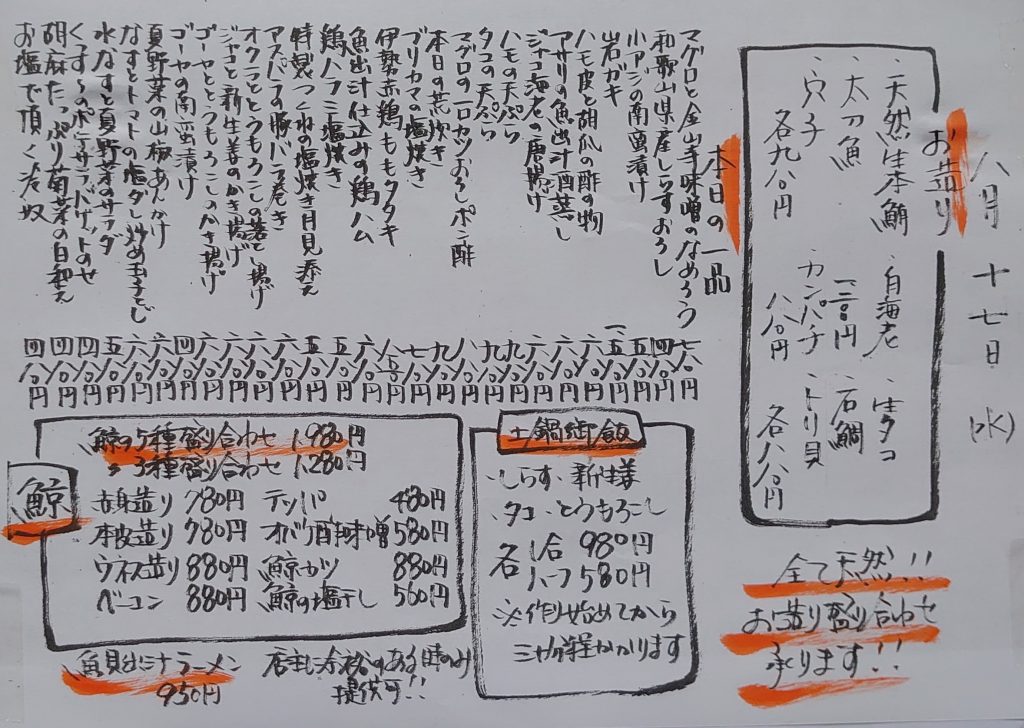 八月十七日(水)
お造り
・天然生本鮪 ・白海老 ・生タコ
・太刀魚 一二八〇円 ・石鯛
・穴子 カンパチ ・トリ貝
各九八〇円 八八〇円 各八八〇円
全て天然!!
お造り盛り合わせ
承ります!!
本日の一品
マグロと金山寺味噌のなめろう 七八〇円
和歌山県産しらすおろし 四八〇円
小アジの南蛮漬け 五八〇円
岩ガキ
ハモ皮と胡瓜の酢の物 六八〇円
アサリの魚出汁酒蒸し 六八〇円
ジャコ海老の唐揚げ 六八〇円
ハモの天ぷら 九八〇円
タコの天ぷら 九八〇円
マグロの一口カツおろしポン酢 八八〇円
本日の荒炊き 九八〇円
ブリカマの塩焼き 九八〇円
伊勢赤鶏ももタタキ
魚出汁仕込みの鶏ハム 六八〇円
鶏ハラミ塩焼き 五八〇円
特製つくねの塩焼き月見添え 五八〇円
アスパラの豚バラ巻き 六八〇円
オクラととうもろこしの落とし揚げ 六八〇円
ジャコと新生姜のかき揚げ 六八〇円
ゴーヤととうもろこしのかき揚げ 六八〇円
ゴーヤの南蛮漬け 四八〇円
夏野菜の山椒あんかけ 六八〇円
なすとトマトの塩ダレ炒め玉子とじ 六八〇円
水なすと夏野菜のサラダ 五八〇円
くずし冷のポテサラバゲットのせ 四八〇円
胡麻たっぷり菊菜の白和え 四八〇円
お塩で頂く冷奴 四八〇円
土鍋御飯
・しらす・新生姜
・タコ・とうもろこし
各 1合 980円
ハーフ 580円
※作り始めてから
三十分程かかります
鯨
鯨の5種盛り合わせ 1,980円
〃3種盛り合わせ 1,280円
赤身造り 780円 テッパ 480円
本皮造り 780円 オバケ酢味噌 580円
ウネス造り 880円 鯨カツ 880円
ベーコン 880円 鯨の塩干し 560円
魚貝出汁ラーメン
950円
店主に余裕のある時のみ
提供可!!